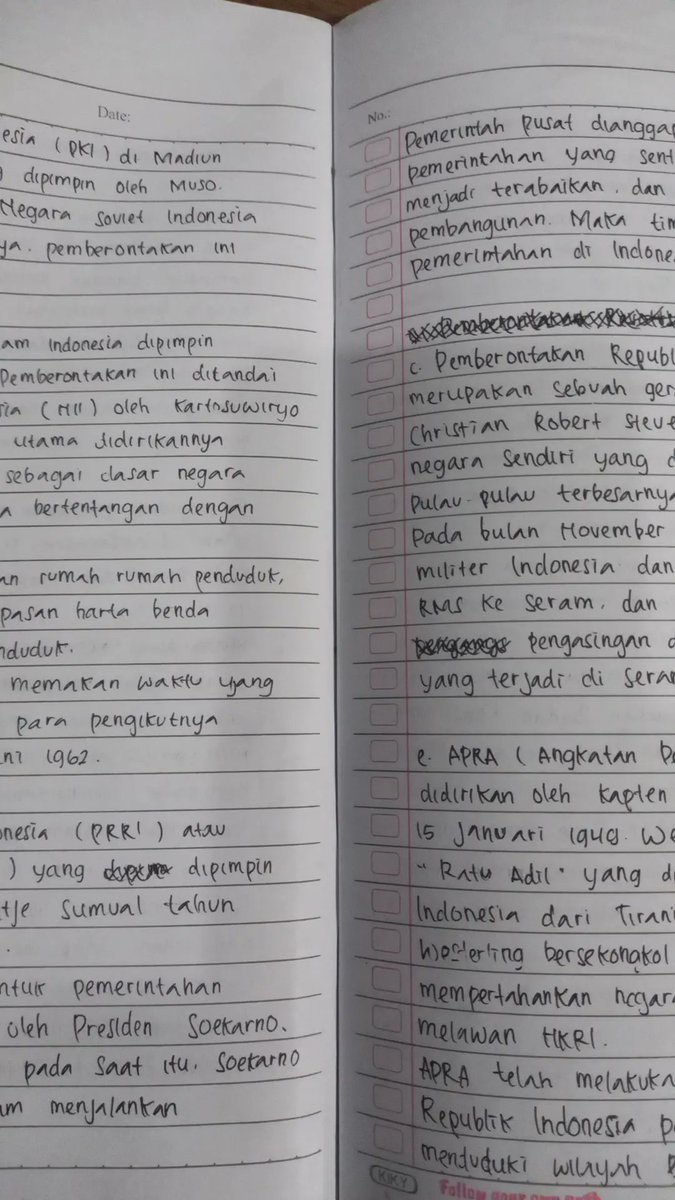 Date:
esia (PKI) di Madiun
dipimpin oleh Muso.
Negara Soviet Indonesia
ya. pemberontakan ini
am Indonesia dipimpin
Pemberontakan ini ditandai
sia (NII) oleh Kartosuwiryo
utama didirikannya
sebagai dasar negara
a bertentangan dengan
an rumah rumah penduduk,
pasan harta benda
nduduk.
memakan waktu yang
para pengikutnya
ni 1962.
onesia (PRRI) atau
) yang dipimpin
tje Sumual tahun
ntuk pemerintahan
oleh Presiden Soekarno.
pada saat itu. Soekarno
am menjalankan
No.:
Pemerintah pusat dianggap
pemerintahan yang sent
menjadi terabaikan, dan
pembangunan. Maka tim
pemerintahan di Indone
c. Pemberontakan Republ
merupakan sebuah ger
Christian Robert Steve
negara sendiri yang d
pulau-pulau terbesarnya
pada bulan November
militer Indonesia dan
RMS ke Seram, dan
pengasingan
yang terjadi di Seram
e. APRA (Angkatan Pe
didirikan oleh Kapten
15 Januari 1949. We
"Ratu Adil" yang d
Indonesia dari Tirani
bersekongkol
mempertahankan negara
melawan NKRI.
APRA telah melakuka
Republik Indonesia p
menduduki wilayah
KIKY
Follow your own path